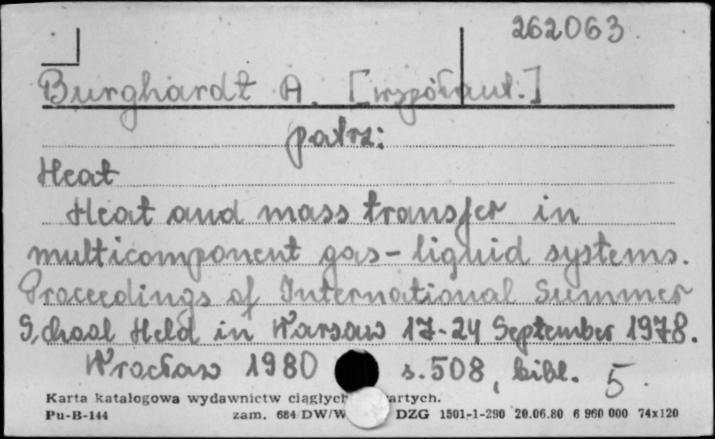 262063
Burghardt A. [współaut.]
patrz:
Heat
Heat and mass transfer in
multicomponent gas-liquid systems.
Proceedings of International Summer
School Held in Warsaw 17-24 September 1978.
Wrocław 1980 s. 508, bibl. 5.
Karta katalogowa wydawnictw ciągłyc artych.
Pu-B-144 zam. 684/DW/W DZG 1501-1-290 20.06.80 6 960 000 74x120